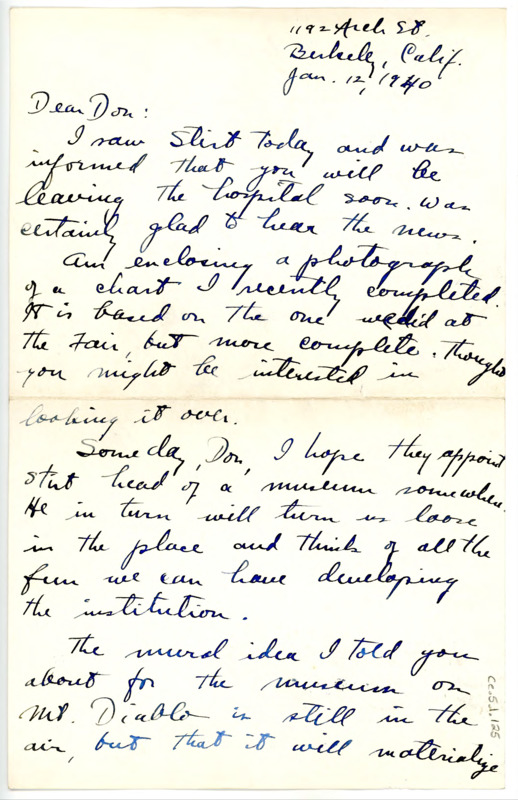 1192 Arch St.
Berkeley, Calif.
Jan. 12, 1940
Dear Don:
I saw Stirt today and was
informed that you will be
leaving the hospital soon. Was
certainly glad to hear the news.
Am enclosing a photograph
of a chart I recently completed.
It is based on the one we did at
the Fair, but more complete. Thought
you might be interested in
looking it over.
Someday, Don, I hope they appoint
Stirt head of a museum somewhere.
He in turn will turn us loose
in the place and think of all the
fun we can have developing
the institution.
The mural idea I told you
about for the museum on
Mt. Diablo is still in the
air, but that it will materialize